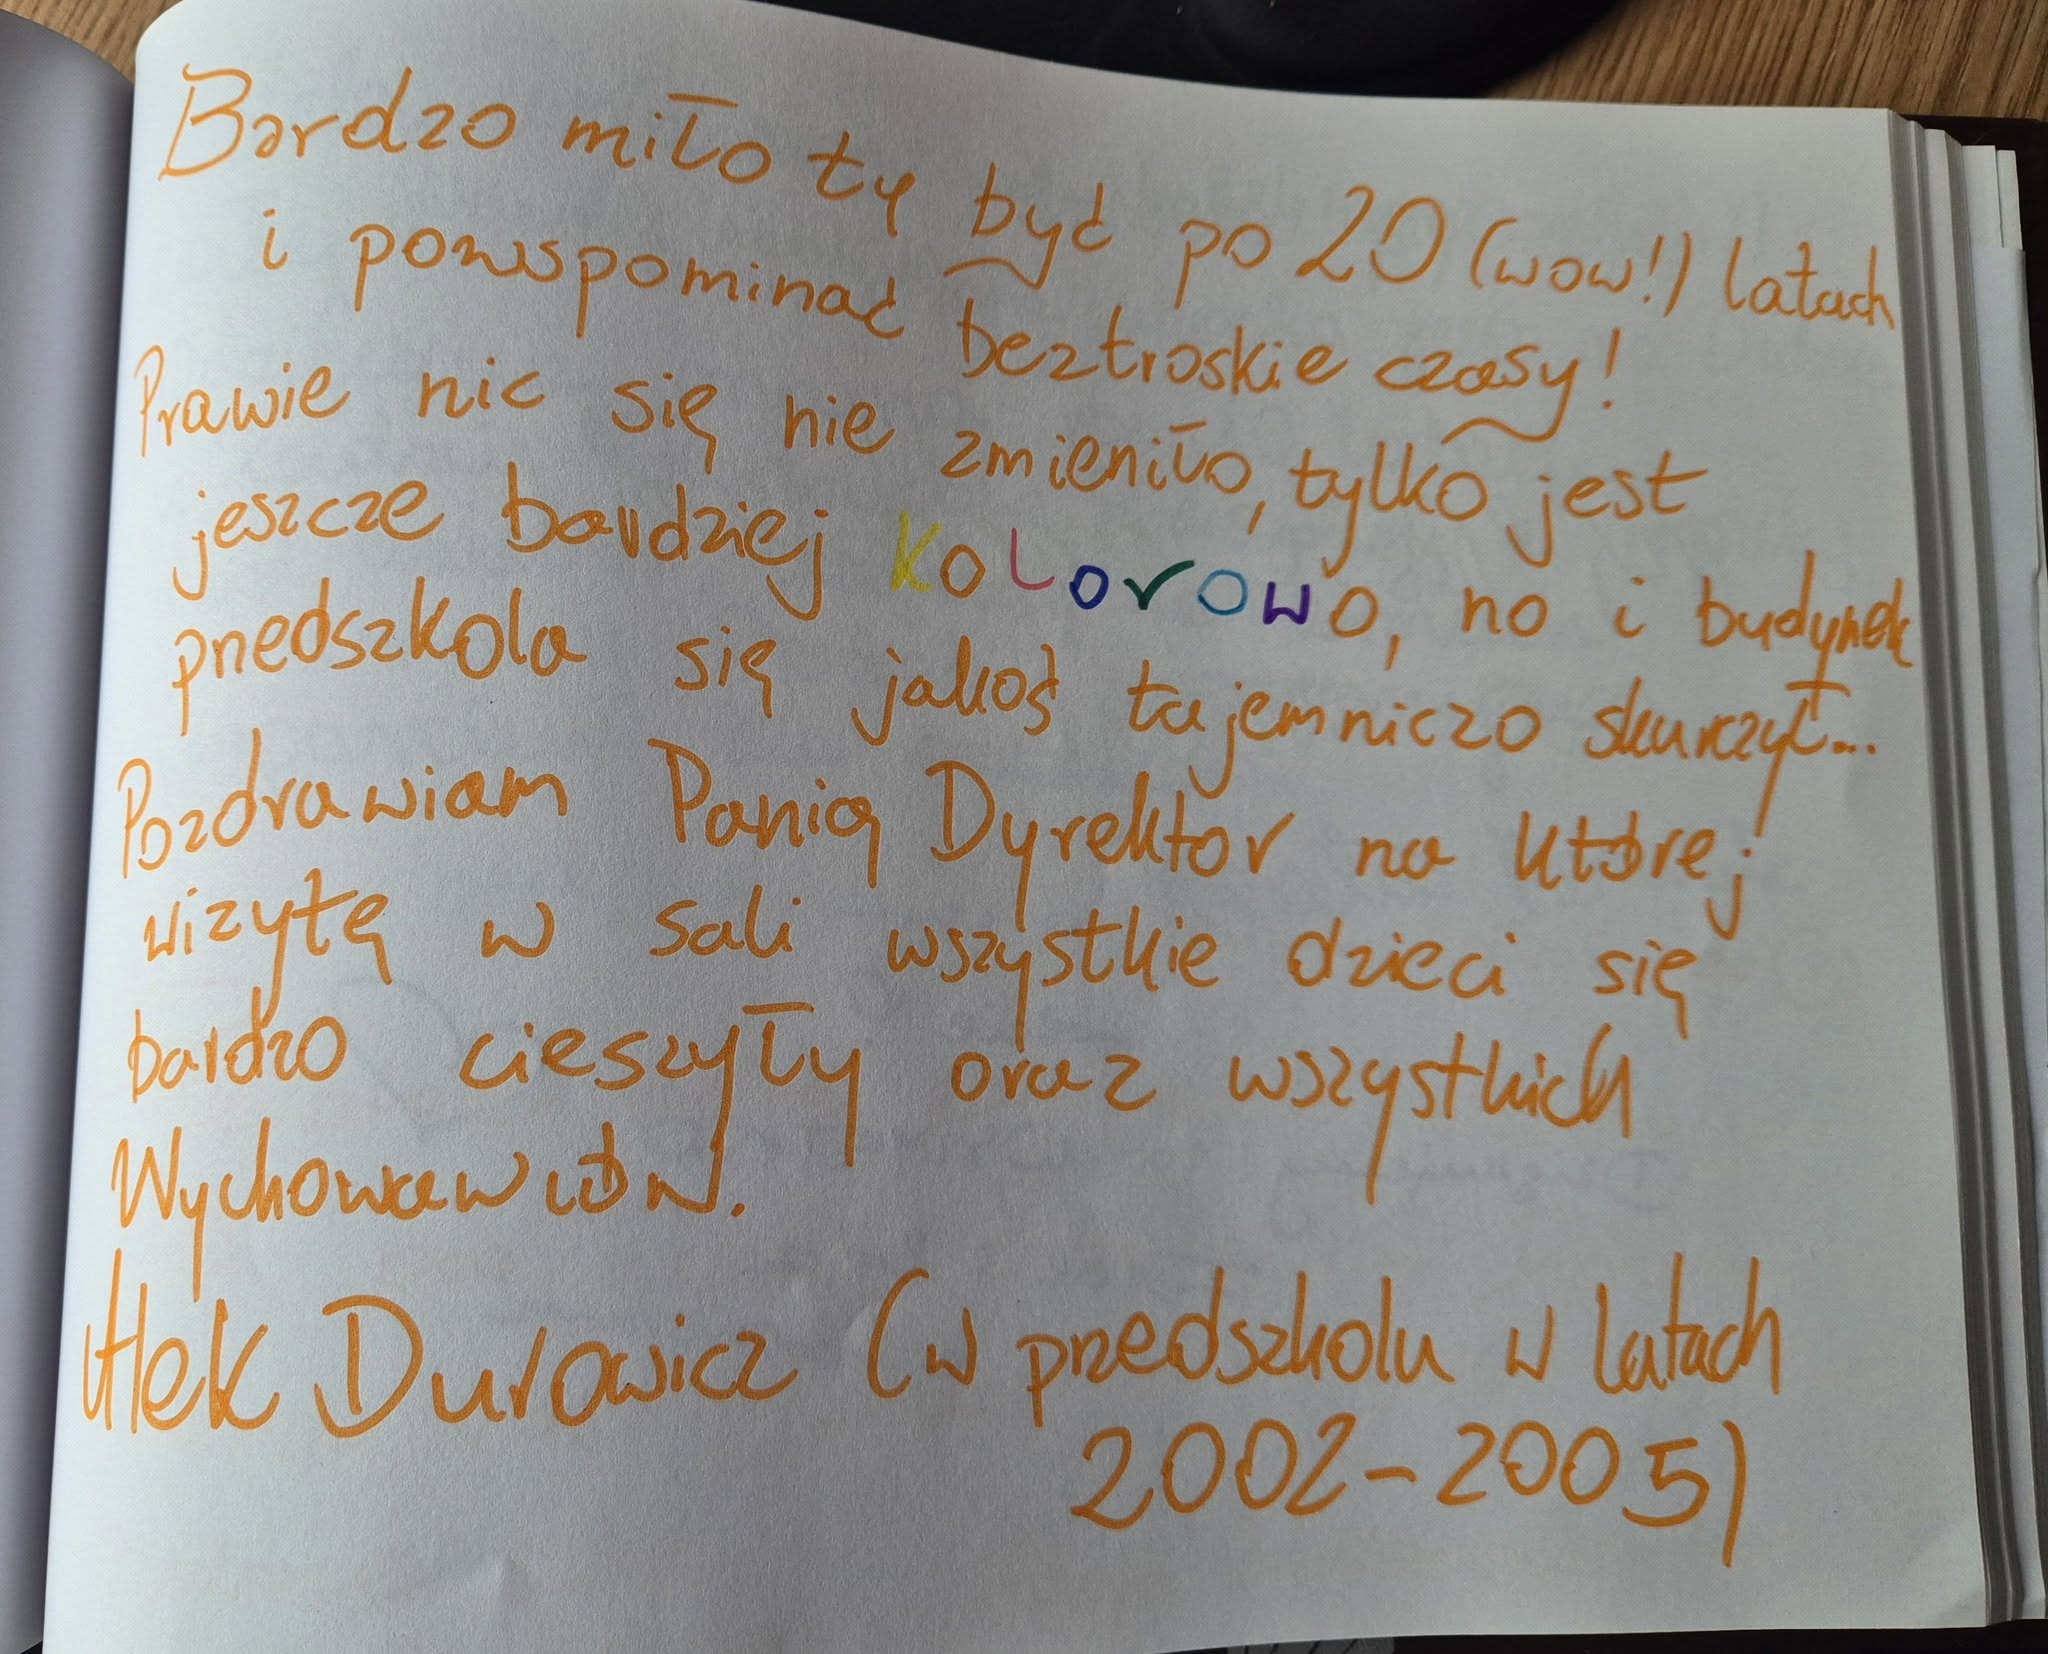 Bardzo miło tu być po 20 (wow!) latach
i powspominać beztroskie czasy!
Prawie nic się nie zmieniło, tylko jest
jeszcze bardziej kolorowo, no i budynek
przedszkola się jakoś tajemniczo skurczył...
Pozdrawiam Panią Dyrektor na której
wizytę w sali wszystkie dzieci się
bardzo cieszyły oraz wszystkich
Wychowawców.
Alek Durowicz (w przedszkolu w latach
2002-2005)